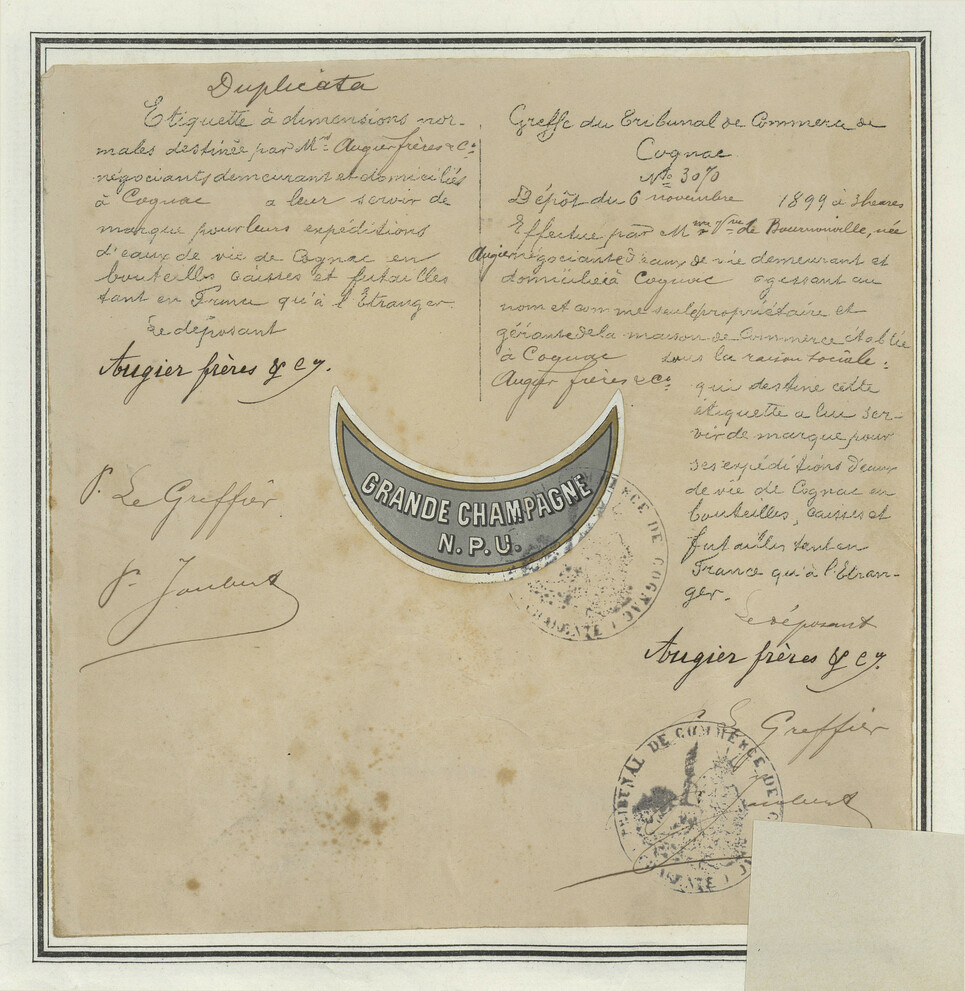 Duplicata
Etiquette à dimensions nor-
males destinée par Mrs Augier frères & Cie
négociants demeurant et domiciliés
à Cognac a leur servir de
marque pour leurs expéditions
d'eaux de vie de Cognac en
bouteilles caisses et futailles
tant en France qu'à l'Etranger.
Le déposant
Augier frères & Cy.
P. Le Greffier
P. Joubert
Greffe du Tribunal de Commerce de
Cognac
No 3070
Dépôt du 6 novembre 1899 à 3 heures
Effectué par Mme Vve de Bournonville, née
Augier négociante d'eaux de vie demeurant et
domiciliée à Cognac agissant au
nom et comme seule propriétaire et
gérante de la maison de Commerce établie
à Cognac sous la raison sociale:
Augier frères & Co
qui destine cette
étiquette a lui ser-
vir de marque pour
ses expéditions d'eaux
de vie de Cognac en
bouteilles, caisses et
futailles tant en
France qu'à l'Etran-
ger.
Le déposant
Augier frères & Cy.
Le Greffier
Joubert
GRANDE CHAMPAGNE
N.P.U.
CE DE COGNAC
CHARENTE
TRIBUNAL DE COMMERCE DE C
CHARENTE